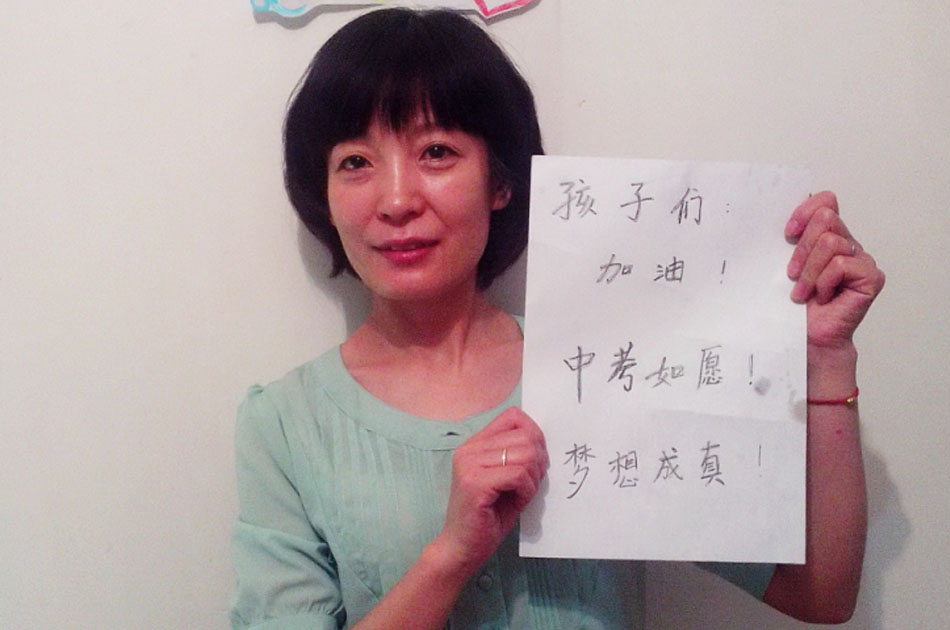 孩子们:
加油!
中考如愿!
梦想成真!